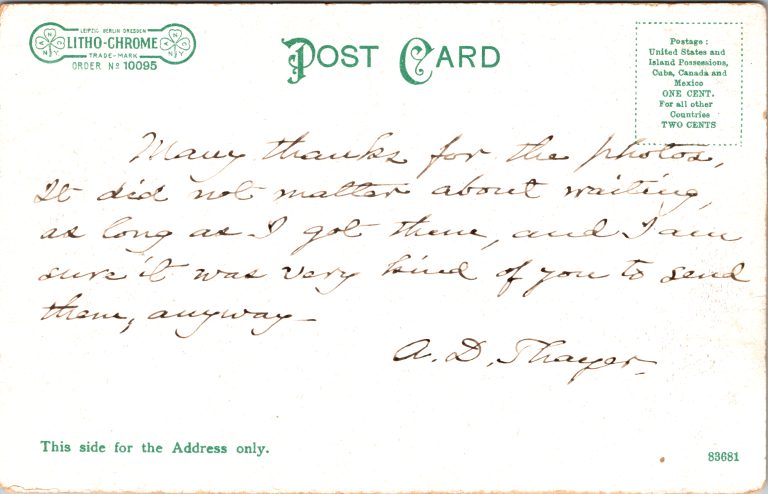 LEIPZIG BERLIN DRESDEN
LITHO-CHROME
TRADE-MARK
ORDER No 10095
N N Y
N N Y
POST CARD
Postage:
United States and
Island Possessions,
Cuba, Canada and
Mexico
ONE CENT.
For all other
Countries
TWO CENTS
Many thanks for the photos,
It did not matter about waiting,
as long as I got them, and I am
sure it was very kind of you to send
them, anyway—
A. D. Thayer.
This side for the Address only.
83681